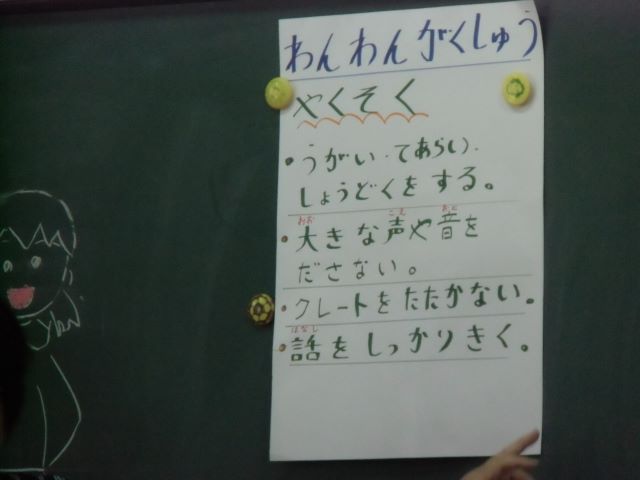 わんわんがくしゅう
やくそく
・うがい・てあらい、
しょうどくをする。
おお こえ おと
・大きな声や音を
ださない。
・クレートをたたかない。
はなし
・話をしっかりきく。